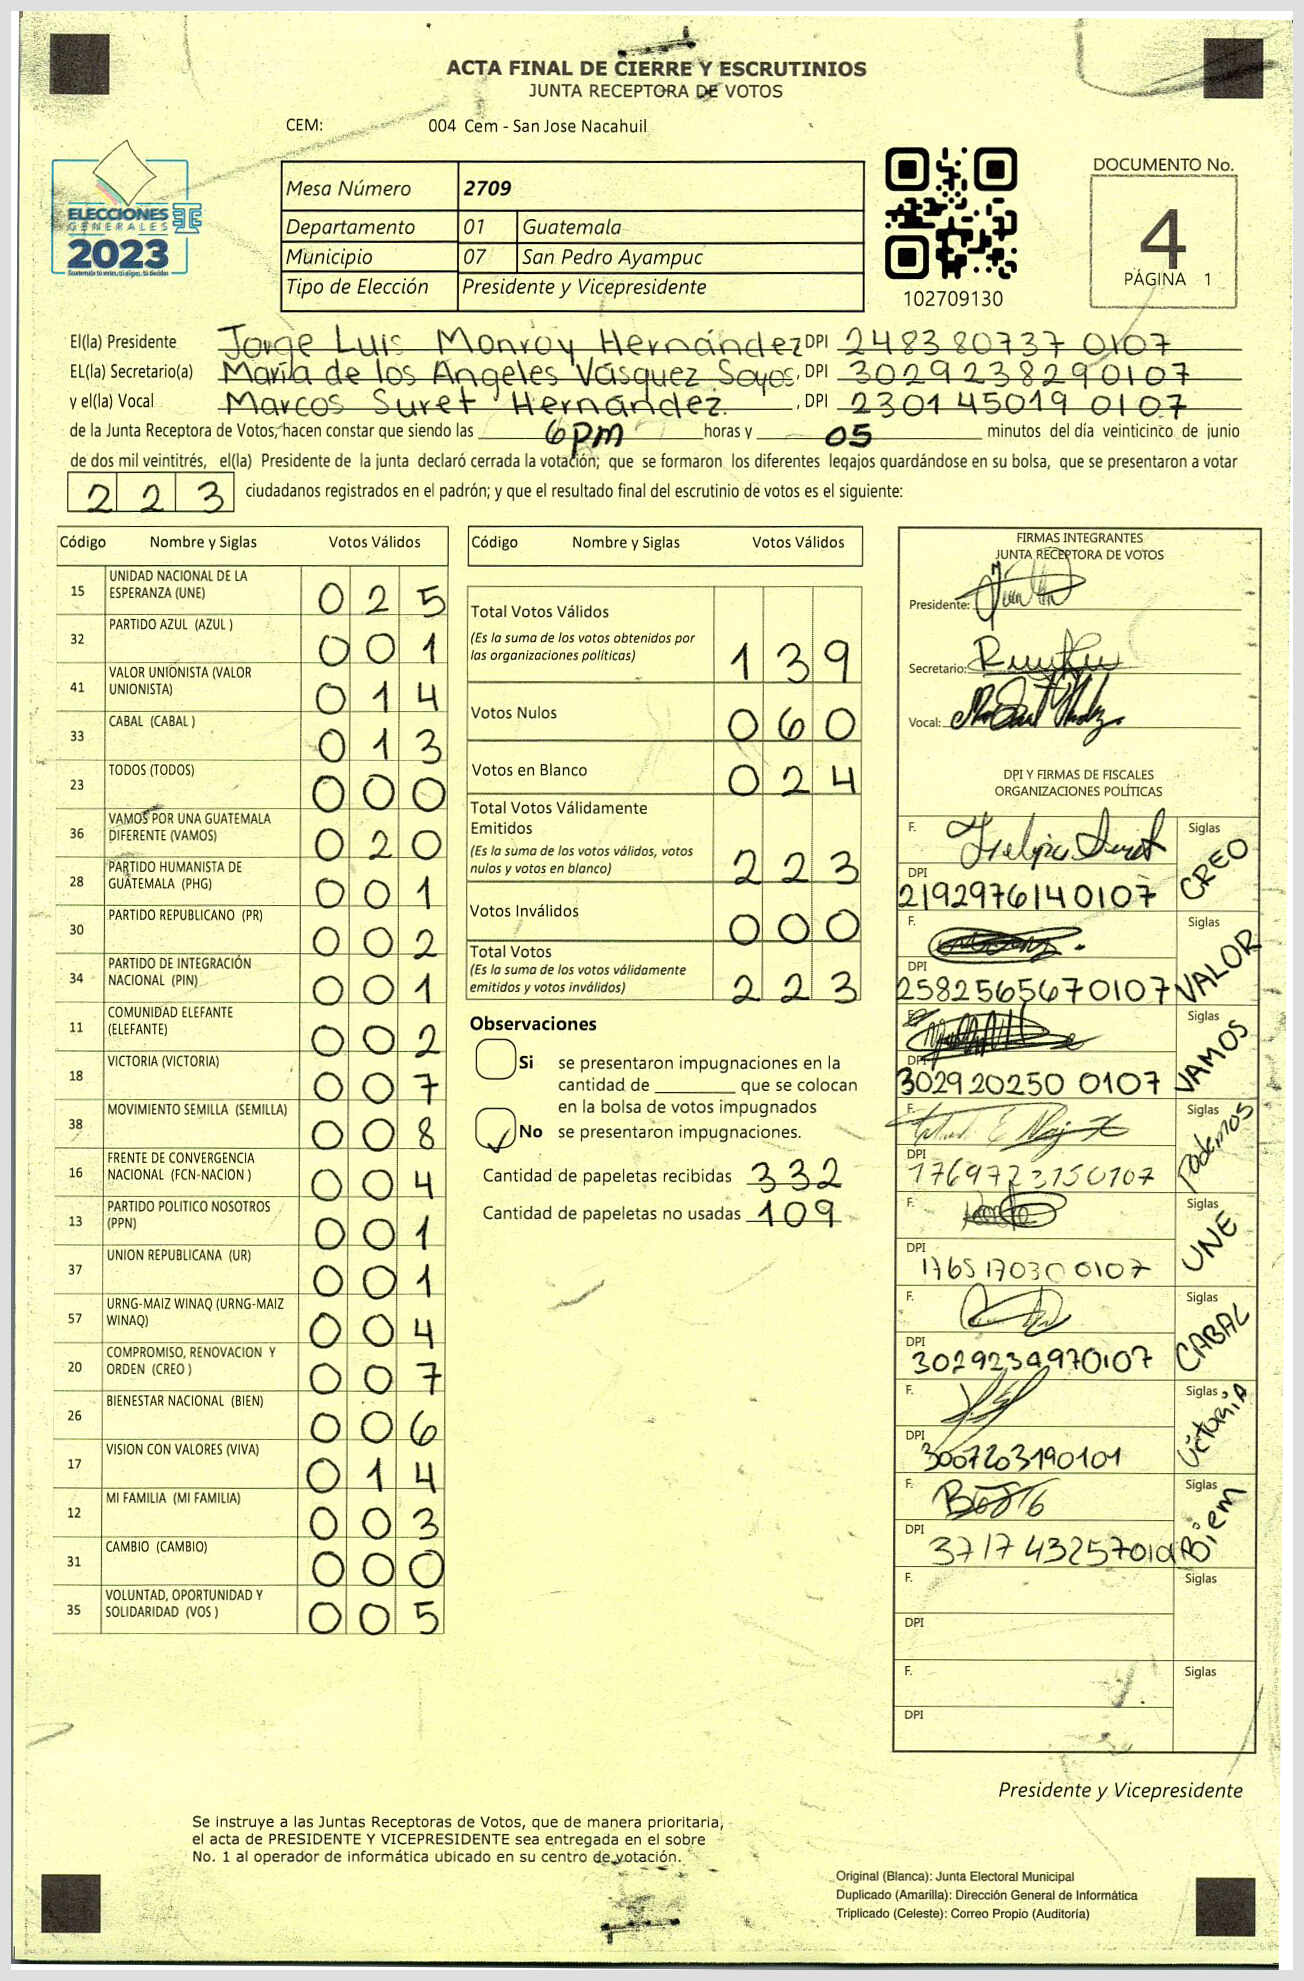 ACTA FINAL DE CIERRE Y ESCRUTINIOS
JUNTA RECEPTORA DE VOTOS
CEM: 004 Cem - San Jose Nacahuil
ELECCIONES
GENERALES
2023
Mesa Número 2709
Departamento 01 Guatemala
Municipio 07 San Pedro Ayampuc
Tipo de Elección Presidente y Vicepresidente
102709130
DOCUMENTO No.
4
PÁGINA 1
El(la) Presidente Jorge Luis Monroy Hernández DPI 248380737 0107
EL(la) Secretario(a) María de los Angeles Vásquez Soyos, DPI 3029238290107
y el(la) Vocal Marcos Suret Hernández. , DPI 2301450190107
de la Junta Receptora de Votos, hacen constar que siendo las 6pm horas y 05 minutos del día veinticinco de junio
de dos mil veintitrés, el(la) Presidente de la junta declaró cerrada la votación; que se formaron los diferentes legajos guardándose en su bolsa, que se presentaron a votar
2 2 3 ciudadanos registrados en el padrón; y que el resultado final del escrutinio de votos es el siguiente:
Código Nombre y Siglas Votos Válidos
15 UNIDAD NACIONAL DE LA
ESPERANZA (UNE) 0 2 5
32 PARTIDO AZUL (AZUL ) 0 0 1
41 VALOR UNIONISTA (VALOR
UNIONISTA) 0 1 4
33 CABAL (CABAL ) 0 1 3
23 TODOS (TODOS) 0 0 0
36 VAMOS POR UNA GUATEMALA
DIFERENTE (VAMOS) 0 2 0
28 PARTIDO HUMANISTA DE
GUATEMALA (PHG) 0 0 1
30 PARTIDO REPUBLICANO (PR) 0 0 2
34 PARTIDO DE INTEGRACIÓN
NACIONAL (PIN) 0 0 1
11 COMUNIDAD ELEFANTE
(ELEFANTE) 0 0 2
18 VICTORIA (VICTORIA) 0 0 7
38 MOVIMIENTO SEMILLA (SEMILLA) 0 0 8
16 FRENTE DE CONVERGENCIA
NACIONAL (FCN-NACION ) 0 0 4
13 PARTIDO POLITICO NOSOTROS
(PPN) 0 0 1
37 UNION REPUBLICANA (UR) 0 0 1
57 URNG-MAIZ WINAQ (URNG-MAIZ
WINAQ) 0 0 4
20 COMPROMISO, RENOVACION Y
ORDEN (CREO ) 0 0 7
26 BIENESTAR NACIONAL (BIEN) 0 0 6
17 VISION CON VALORES (VIVA) 0 1 4
12 MI FAMILIA (MI FAMILIA) 0 0 3
31 CAMBIO (CAMBIO) 0 0 0
35 VOLUNTAD, OPORTUNIDAD Y
SOLIDARIDAD (VOS ) 0 0 5
Código Nombre y Siglas Votos Válidos
Total Votos Válidos
(Es la suma de los votos obtenidos por
las organizaciones políticas) 1 3 9
Votos Nulos 0 6 0
Votos en Blanco 0 2 4
Total Votos Válidamente
Emitidos
(Es la suma de los votos válidos, votos
nulos y votos en blanco) 2 2 3
Votos Inválidos 0 0 0
Total Votos
(Es la suma de los votos válidamente
emitidos y votos inválidos) 2 2 3
Observaciones
Si se presentaron impugnaciones en la
cantidad de que se colocan
en la bolsa de votos impugnados
No se presentaron impugnaciones.
Cantidad de papeletas recibidas 332
Cantidad de papeletas no usadas 109
FIRMAS INTEGRANTES
JUNTA RECEPTORA DE VOTOS
Presidente:
Secretario:
Vocal:
DPI Y FIRMAS DE FISCALES
ORGANIZACIONES POLÍTICAS
F. Siglas CREO
DPI
2192976140107
F. Siglas VALOR
DPI
2582565670107
F. Siglas VAMOS
DPI
302920250 0107
F. Siglas Podemos
DPI
1769723150107
F. Siglas UNE
DPI
1765170300107
F. Siglas CABAL
DPI
3029234970107
F. Siglas Victoria
DPI
3007203190101
F. Siglas Biem
DPI
F. Siglas
DPI
F. Siglas
DPI
Presidente y Vicepresidente
Se instruye a las Juntas Receptoras de Votos, que de manera prioritaria,
el acta de PRESIDENTE Y VICEPRESIDENTE sea entregada en el sobre
No. 1 al operador de informática ubicado en su centro de votación.
Original (Blanca): Junta Electoral Municipal
Duplicado (Amarilla): Dirección General de Informática
Triplicado (Celeste): Correo Propio (Auditoría)